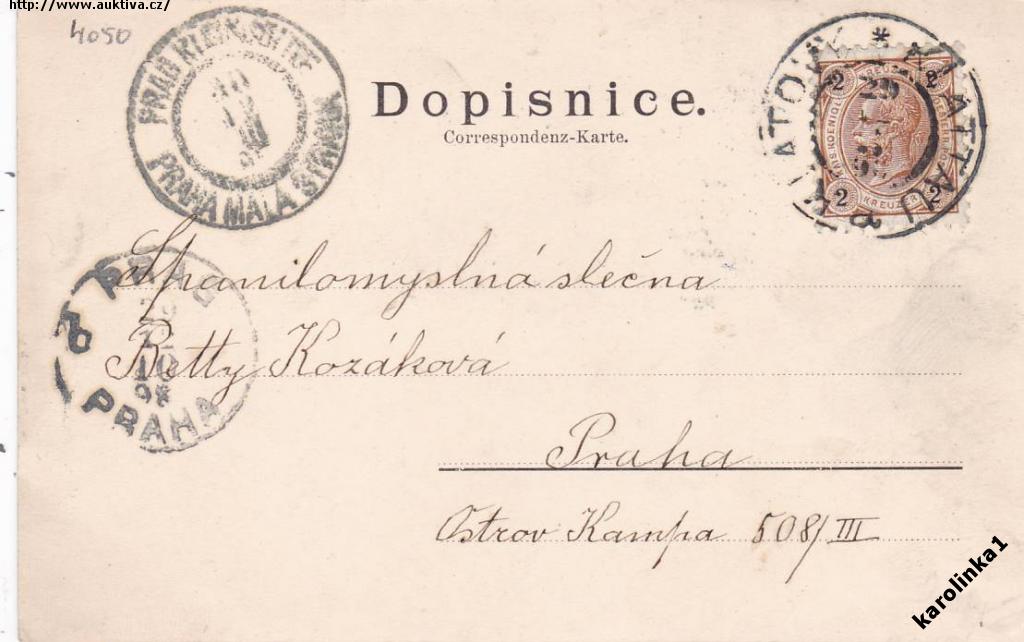 http://www.auktiva.cz/
4050
PRAG KLEINSEITE
PRAHA MALÁ STRANA
Dopisnice.
Correspondenz-Karte.
KLATTAU
KLATOVY
2 2
2 2
KREUZER
Spanilomyslná slečna
Betty Kozáková
Praha
Ostrov Kampa 508/III
PRAG
98
PRAHA
karolinka1